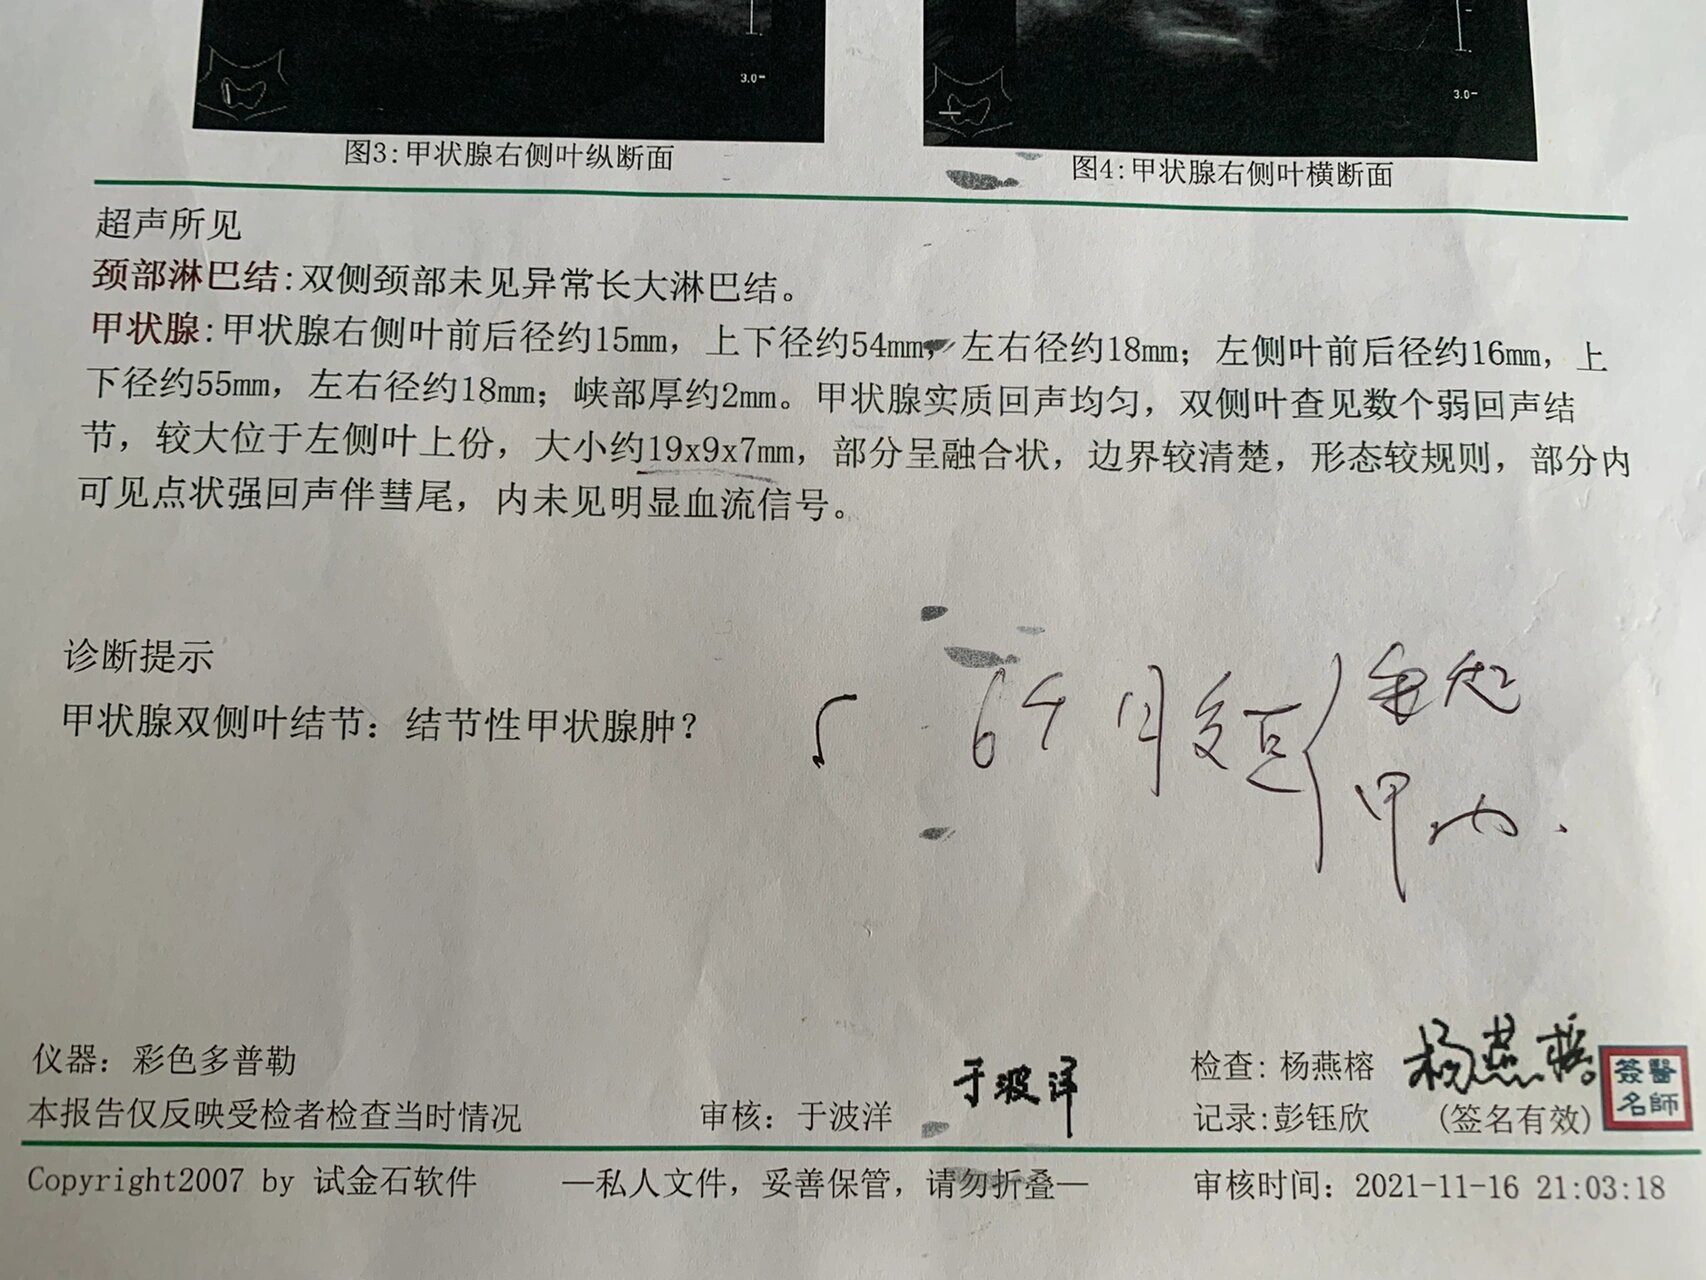 3.0-
3.0-
图3:甲状腺右侧叶纵断面
图4:甲状腺右侧叶横断面
超声所见
颈部淋巴结:双侧颈部未见异常长大淋巴结。
甲状腺:甲状腺右侧叶前后径约15mm，上下径约54mm，左右径约18mm；左侧叶前后径约16mm，上
下径约55mm，左右径约18mm；峡部厚约2mm。甲状腺实质回声均匀，双侧叶查见数个弱回声结
节，较大位于左侧叶上份，大小约19x9x7mm，部分呈融合状，边界较清楚，形态较规则，部分内
可见点状强回声伴彗尾，内未见明显血流信号。
诊断提示
甲状腺双侧叶结节：结节性甲状腺肿？
6个月复查
甲功.
仪器：彩色多普勒
本报告仅反映受检者检查当时情况
审核：于波洋
于波洋
检查：杨燕榕
杨燕榕
记录:彭钰欣
(签名有效)
醫師簽名
Copyright2007 by 试金石软件
—私人文件，妥善保管，请勿折叠—
审核时间：2021-11-16 21:03:18